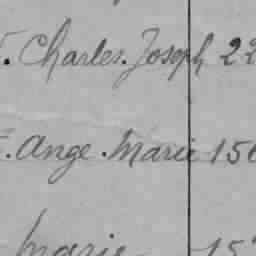 . Charles. Joseph 22
. Ange. Marie 15
Marie 15